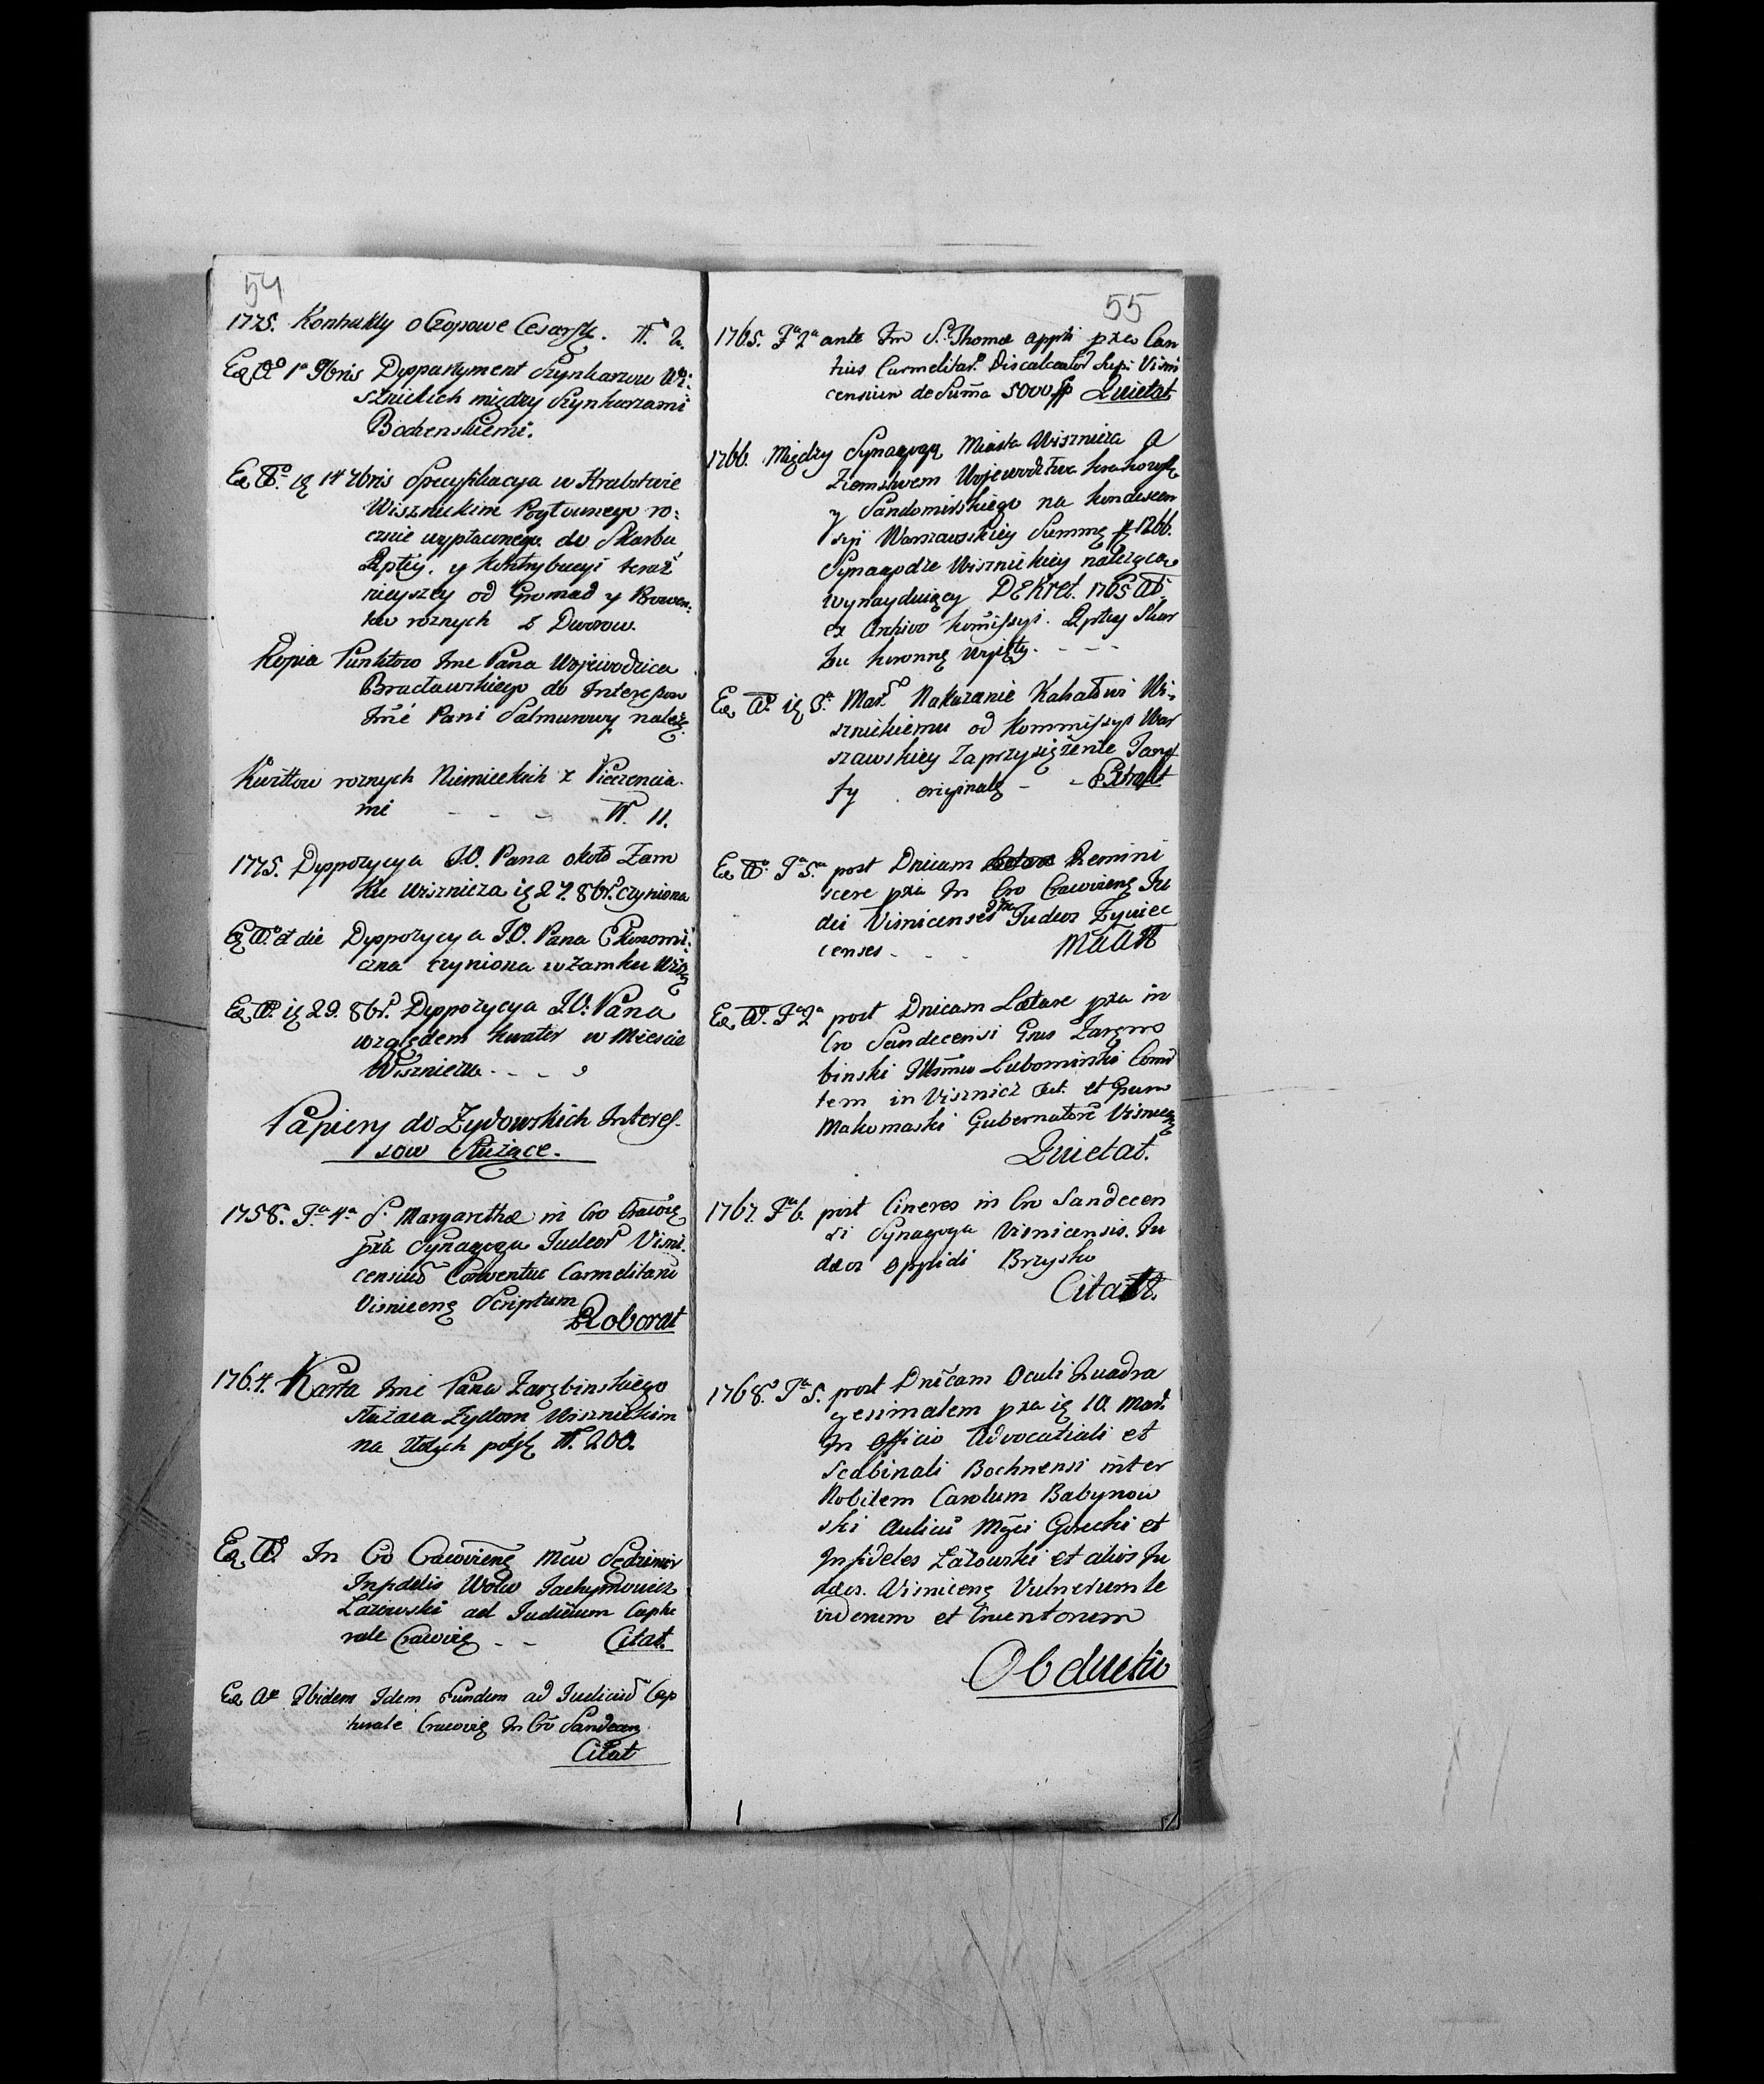 54
1775. Kontrakty o Czopowe Cesarsk. N. 2.
Eo Ao 1a 9bris Dyspartyment Szynkarzow Wi:
sznickich między Szynkarzami
Bochenskiemi.
Eo Ao. 14 7bris Specyfikacya w Hrabstwie
Wisznickim Pogłownego ro:
cznie wypłaconego do Skarbu
Rptey. y Kontrybucyi teraź
nieyszey od Gromad y Browar:
kow roznych z Dworow.
Kopia Punktow Jme Pana Wojewodzica
Bracławskiego do Interessow
Jme Pani Salmurowy należ.
Kwittow roznych Niemieckich z Pieczencia
mi - - - N. 11.
1775. Dyspozycya J.O. Pana około Zam
ku Wisznicza 27. 8br. czyniona
Eo Ao et die Dyspozycya J.O. Pana Ekonomi:
czna czyniona w Zamku Wisz
Eo Ao. 29. 8br. Dyspozycya J.O. Pana
względem kwater w Miescie
Wisznicza - - -
Papiery do Zydowskich Interes-
sow Służące.
1758. Fa 4a S. Margarethæ in Cro Cracovię
pxa Synagoga Judeor Visni.
censiuo Conventui Carmelitanu
Visniceng Scriptum
Roborat
1764. Karta Jmci Pana Zarębinskiego
służaca Zydom Wisznickim
na złotych polsk N. 200.
Eo Ao. In Cro Cracovieng
Infidelis Jachymowicz
Lazowski ad Judicium Captu
rale Cracovię - - Citat.
Eo Ao Ibidem Idem Eundem ad Judiciu Cap
turale Cracovię In Cro Sandecen
Citat
55
1765. Fa 2a ante Fm S. Thomæ appli pxa Con
Carmelitar. Discalceator Visni
censium de Suma 5000 Quietat
1766. Między Synagogą Miasta Wisznicza a
Ziemstwem Wojewodztwa krakowsk
y Sandomirskiego na kondescen
syi Warszawskiey Summę 1266.
Synagodze Wisznickiey należące
wynayduiący Dekret. 1765
ex Archivo komissyi. Rptey Skar
bu koronnę wyięty. - - -
Eo Ao. 5. Mar. Nakazanie Kahałowi Wi:
sznickiemu od Kommissyi War
szawskiey Zaprzysiężenie Taryf
fy originalę - - Extrakt
Eo Ao. Fa 5a post Dnicam Remini
scere pxa In Cro Cracoviens Ju
dei Visnicenses Judeos Zywiec
censes - - -
Eo Ao. Fa 2a post Dnicam Lætare pxa in
Cro Sandecensi Gnus Zarem
binski Lubomirski Comi
tem in Visznicz et Gnum
Makomaski Gubernatore Visnicz
Quietat.
1767. Fa 6. post Cineres in Cro Sandecen
si Synagoga Visnicensis. Ju
dæos oppidi Brzysko
1768. Fa 5. post Dnicam Oculi Quadra
gesimalem pxa 10. Mar.
In Officio Advocatiali et
Scabinali Bochnensi inter
Nobilem Carolum Babynow
ski Aulicu Mgci Gorecki et
Infideles Lazowski et alios Ju
dæos. Visniceng Vulnerum le
vidorum et Cruentorum
Obductio